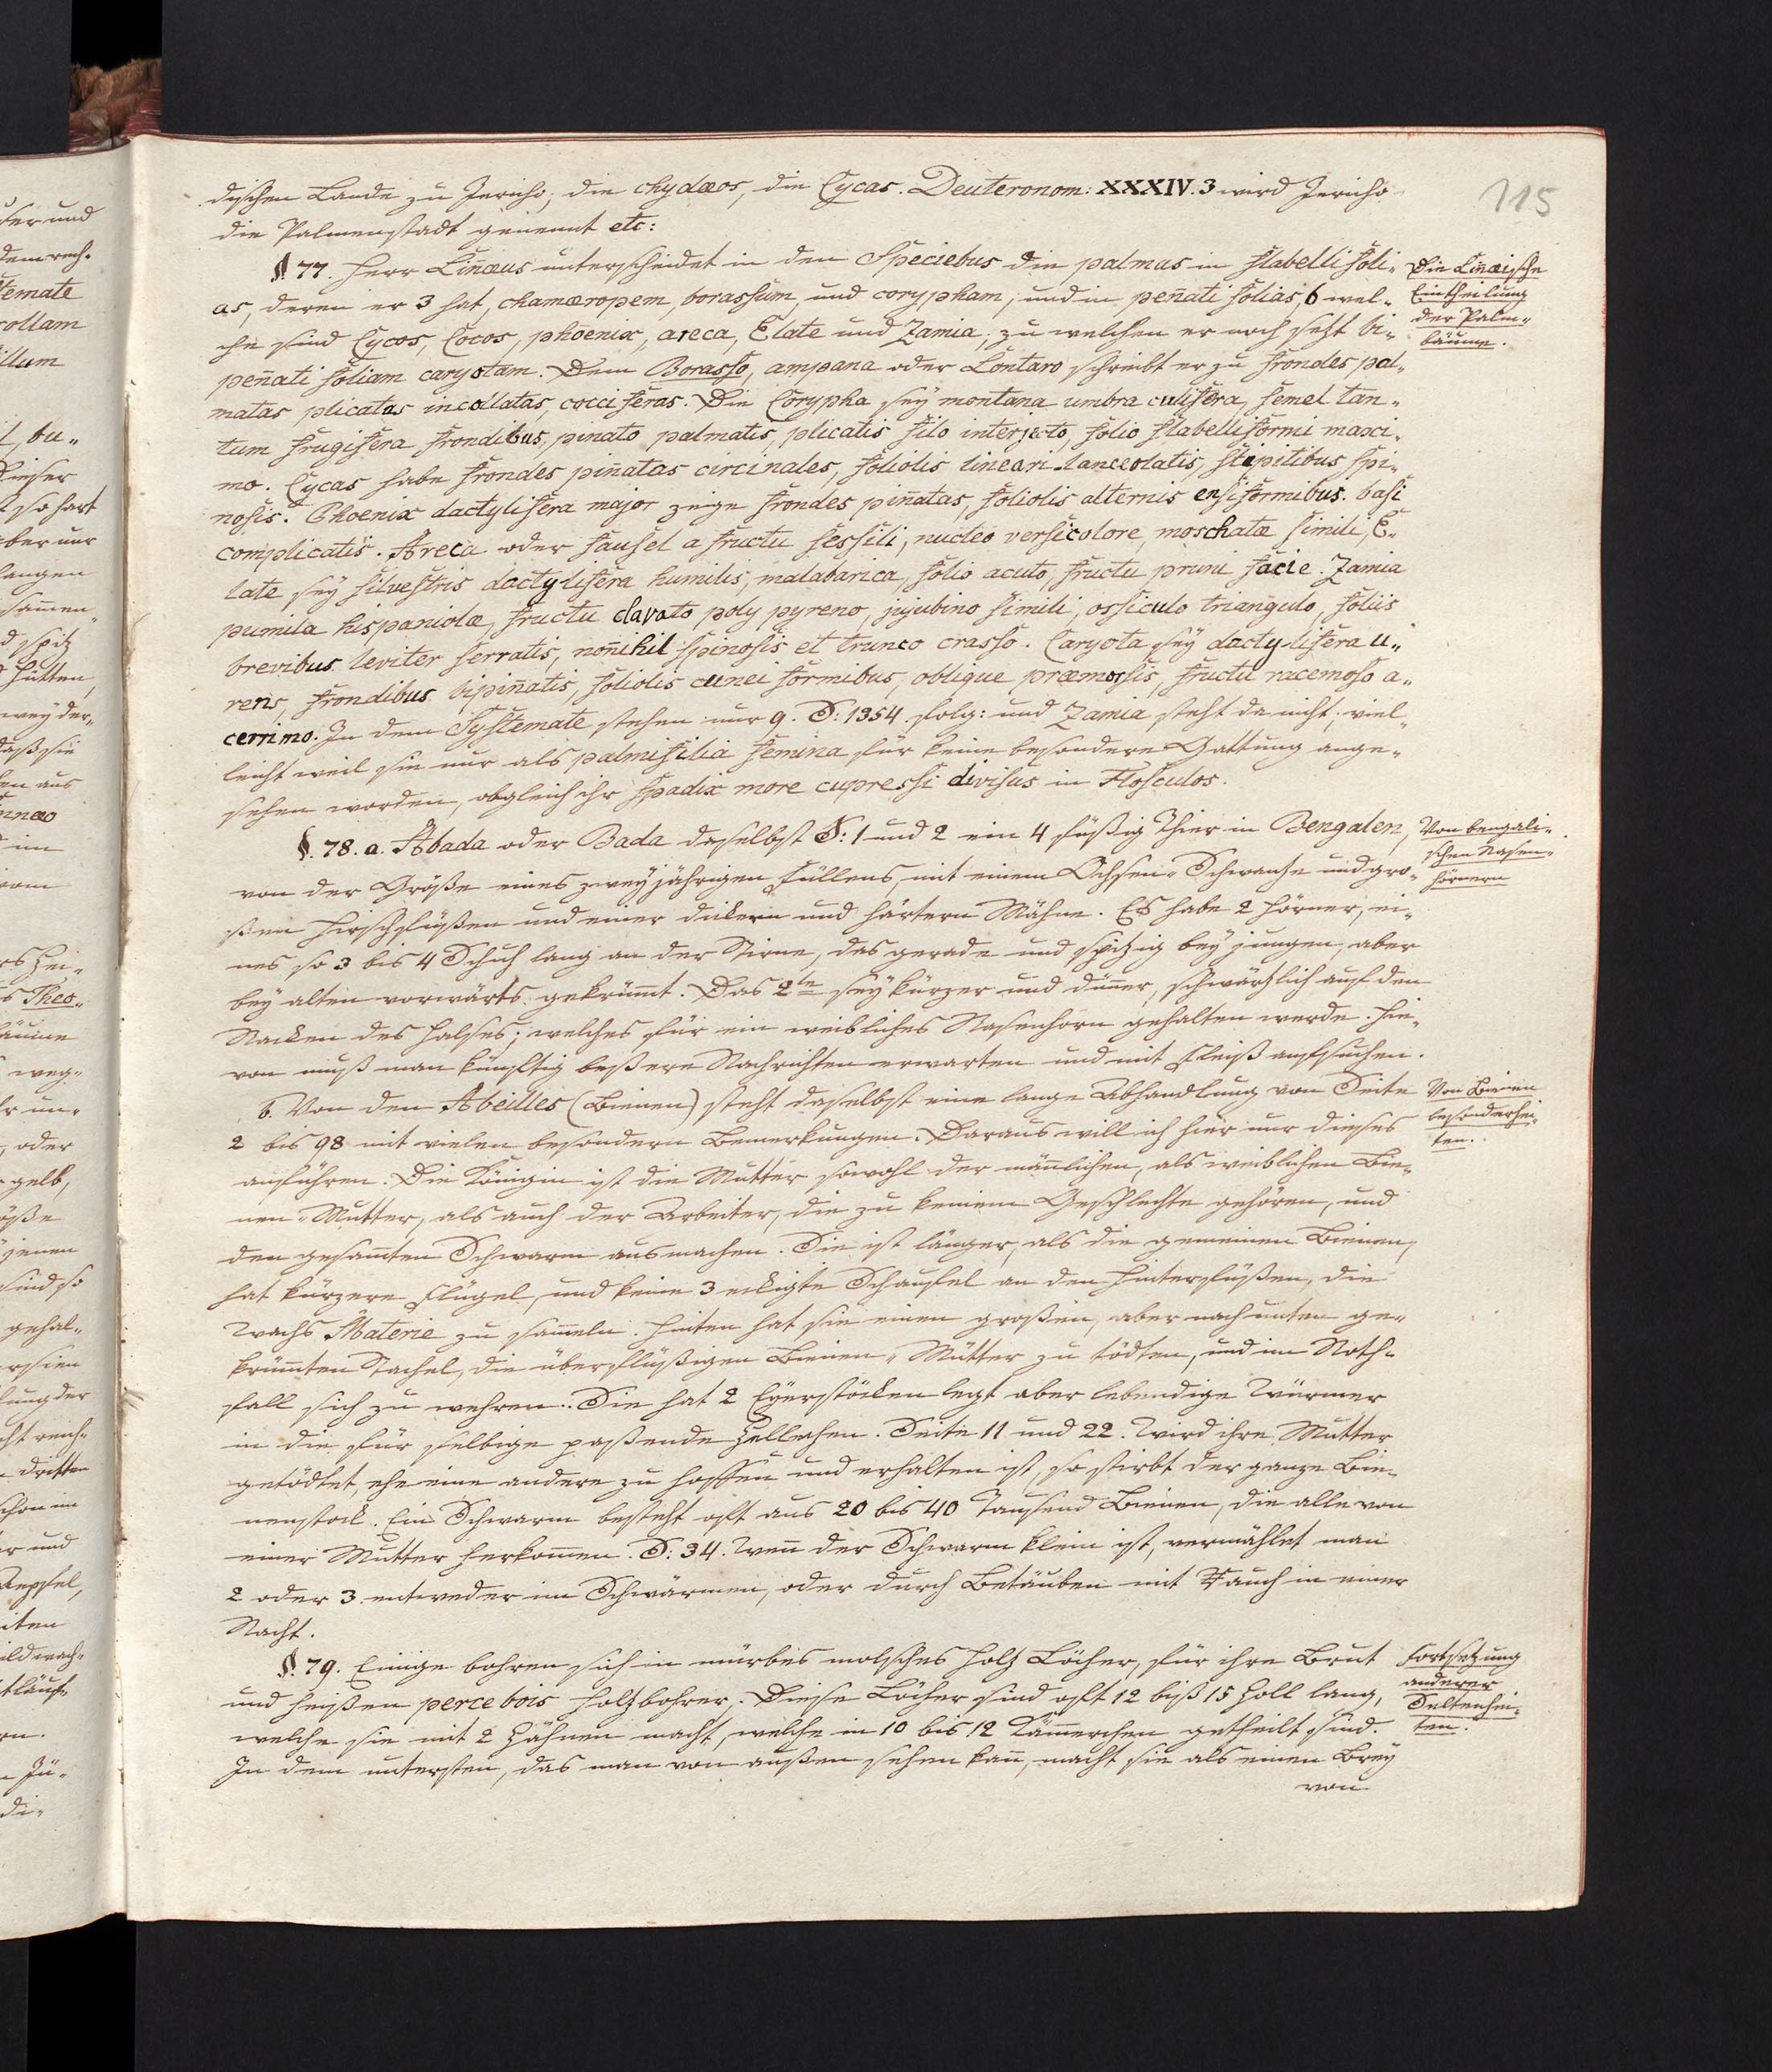 115
dischen Lande zu Jericho; die chydæos, die Cycas. Deuteronom: XXXIV. 3 wird Jericho
die Palmenstadt genennt etc:
§ 77. Herr Lin̄æus unterscheidet in den Speciebus die palmas in flabelli foli-
as, deren er 3 hat, chamæropem, borassum, und corypham; und in pen̄ati folias, 6 wel-
che sind Cycos, Cocos, phœnix, areca, Elate und Zamia; zu welchen er noch setzt bi-
pen̄ati foliam caryotam. Dem Borasso, ampana oder Lontaro schreibt er zu frondes pal-
matas plicatas incollatas, cocciferas. Die Corypha sey montana umbra culifera, semel tan-
tum frugifera frondibus, pinato palmatis, plicatis filo interjecto, folio flabelliformi maxi-
mo. Cycas habe frondes pin̄atas circinales, foliolis lineari-lanceolatis, stipitibus spi-
nosis. Phoenix dactylifera major zeige frondes pin̄atas, foliolis alternis ensiformibus basi
complicatis. Areca oder faufel a fructu sessili, nucleo versicolore, moschatæ simili, E-
late sey silvestris dactylifera humilis, malabarica, folio acuto, fructu pruni facie. Zamia
pumila hispaniolæ, fructu clavato poly pyreno, pyjubino simili, ossiculo triangulo, foliis
brevibus leviter serratis, non̄ihil spinosis et trunco crasso. Caryota sey dactylifera u-
rens, frondibus bipin̄atis, foliolis cunei formibus, oblique præmorsis, fructu racemoso a-
cerrimo. In dem Systemate stehen nur 9. S: 1354. folg: und Zamia steht da nicht; viel-
leicht weil sie nur als palmifilia femina für keine besondere Gattung ange-
sehen worden, obgleich ihr spadix more cupressi divisus in Flosculos.
§. 78. a. Abada oder Bada daselbst S: 1 und 2 ein 4 füßig Thier in Bengalen,
von der Größe eines zweyjährigen Füllens, mit einem Ochsen-Schwanze und gro-
ßen Hirschfüßen und einer dickern und härtern Mähne. Es habe 2 Hörner, ei-
nes so 3 bis 4 Schuh lang an der Stirne, das gerade und spitzig bey jungen, aber
bey alten vorwärts gekrüm̄t. Das 2te sey kürzer und dün̄er, schwärzlich auf den
Nacken des Halses; welches für ein weibliches Nasenhorn gehalten werde. Hie-
von muß man künftig beßere Nachrichten erwarten und mit Fleiß aufsuchen.
b. Von den Abeilles (Bienen) steht daselbst eine lange Abhandlung von Seite
2 bis 98 mit vielen besondern Bemerkungen. Daraus will ich hier nur dieses
anführen. Die Königin ist die Mutter sowohl der män̄lichen, als weiblichen Bie-
nen-Mutter, als auch der Arbeiter, die zu keinem Geschlechte gehören, und
den gesam̄ten Schwarm ausmachen. Sie ist länger, als die gemeinen Bienen,
hat kürzere Flügel, und keine 3 eckigte Schaufel an den Hinterfüßen, die
Wachs Materie zu sam̄eln. Hinten hat sie einen großen, aber nach unten ge-
krüm̄ten Stachel, die überflüßigen Bienen-Mütter zu tödten, und im Noth-
fall sich zu wehren. Sie hat 2 Eyerstöcken legt aber lebendige Würmer
in die für selbige paßende Zellechen. Seite 11 und 22. Wird ihre Mutter
getödtet, ehe eine andere zu hoffen und erhalten ist, so stirbt der ganze Bie-
nenstock. Ein Schwarm besteht oft aus 20 bis 40 Tausend Bienen, die alle von
einer Mutter herkom̄en. S: 34. Wen̄ der Schwarm klein ist, vermählet man
2 oder 3. entweder im Schwärmen, oder durch Betäuben mit Rauch in einer
Nacht.
§. 79. Einige bohren sich in mürbes molsches Holz Löcher, für ihre Brut
und heißen perce bois Holzbohrer. Diese Löcher sind oft 12 biß 15 Zoll lang,
welche sie mit 2 Zähnen macht, welche in 10 bis 12 Käm̄erchen getheilt sind.
In dem untersten, das man von außen sehen kan̄, macht sie als einen Brey
von
Die Lin̄æische
Eintheilung
der Palm-
bäume.
Von bengali-
schen Nasen-
hörnern
Von Bienen
besonderhei-
ten.
Fortsetzung
anderer
Seltenhei-
ten.